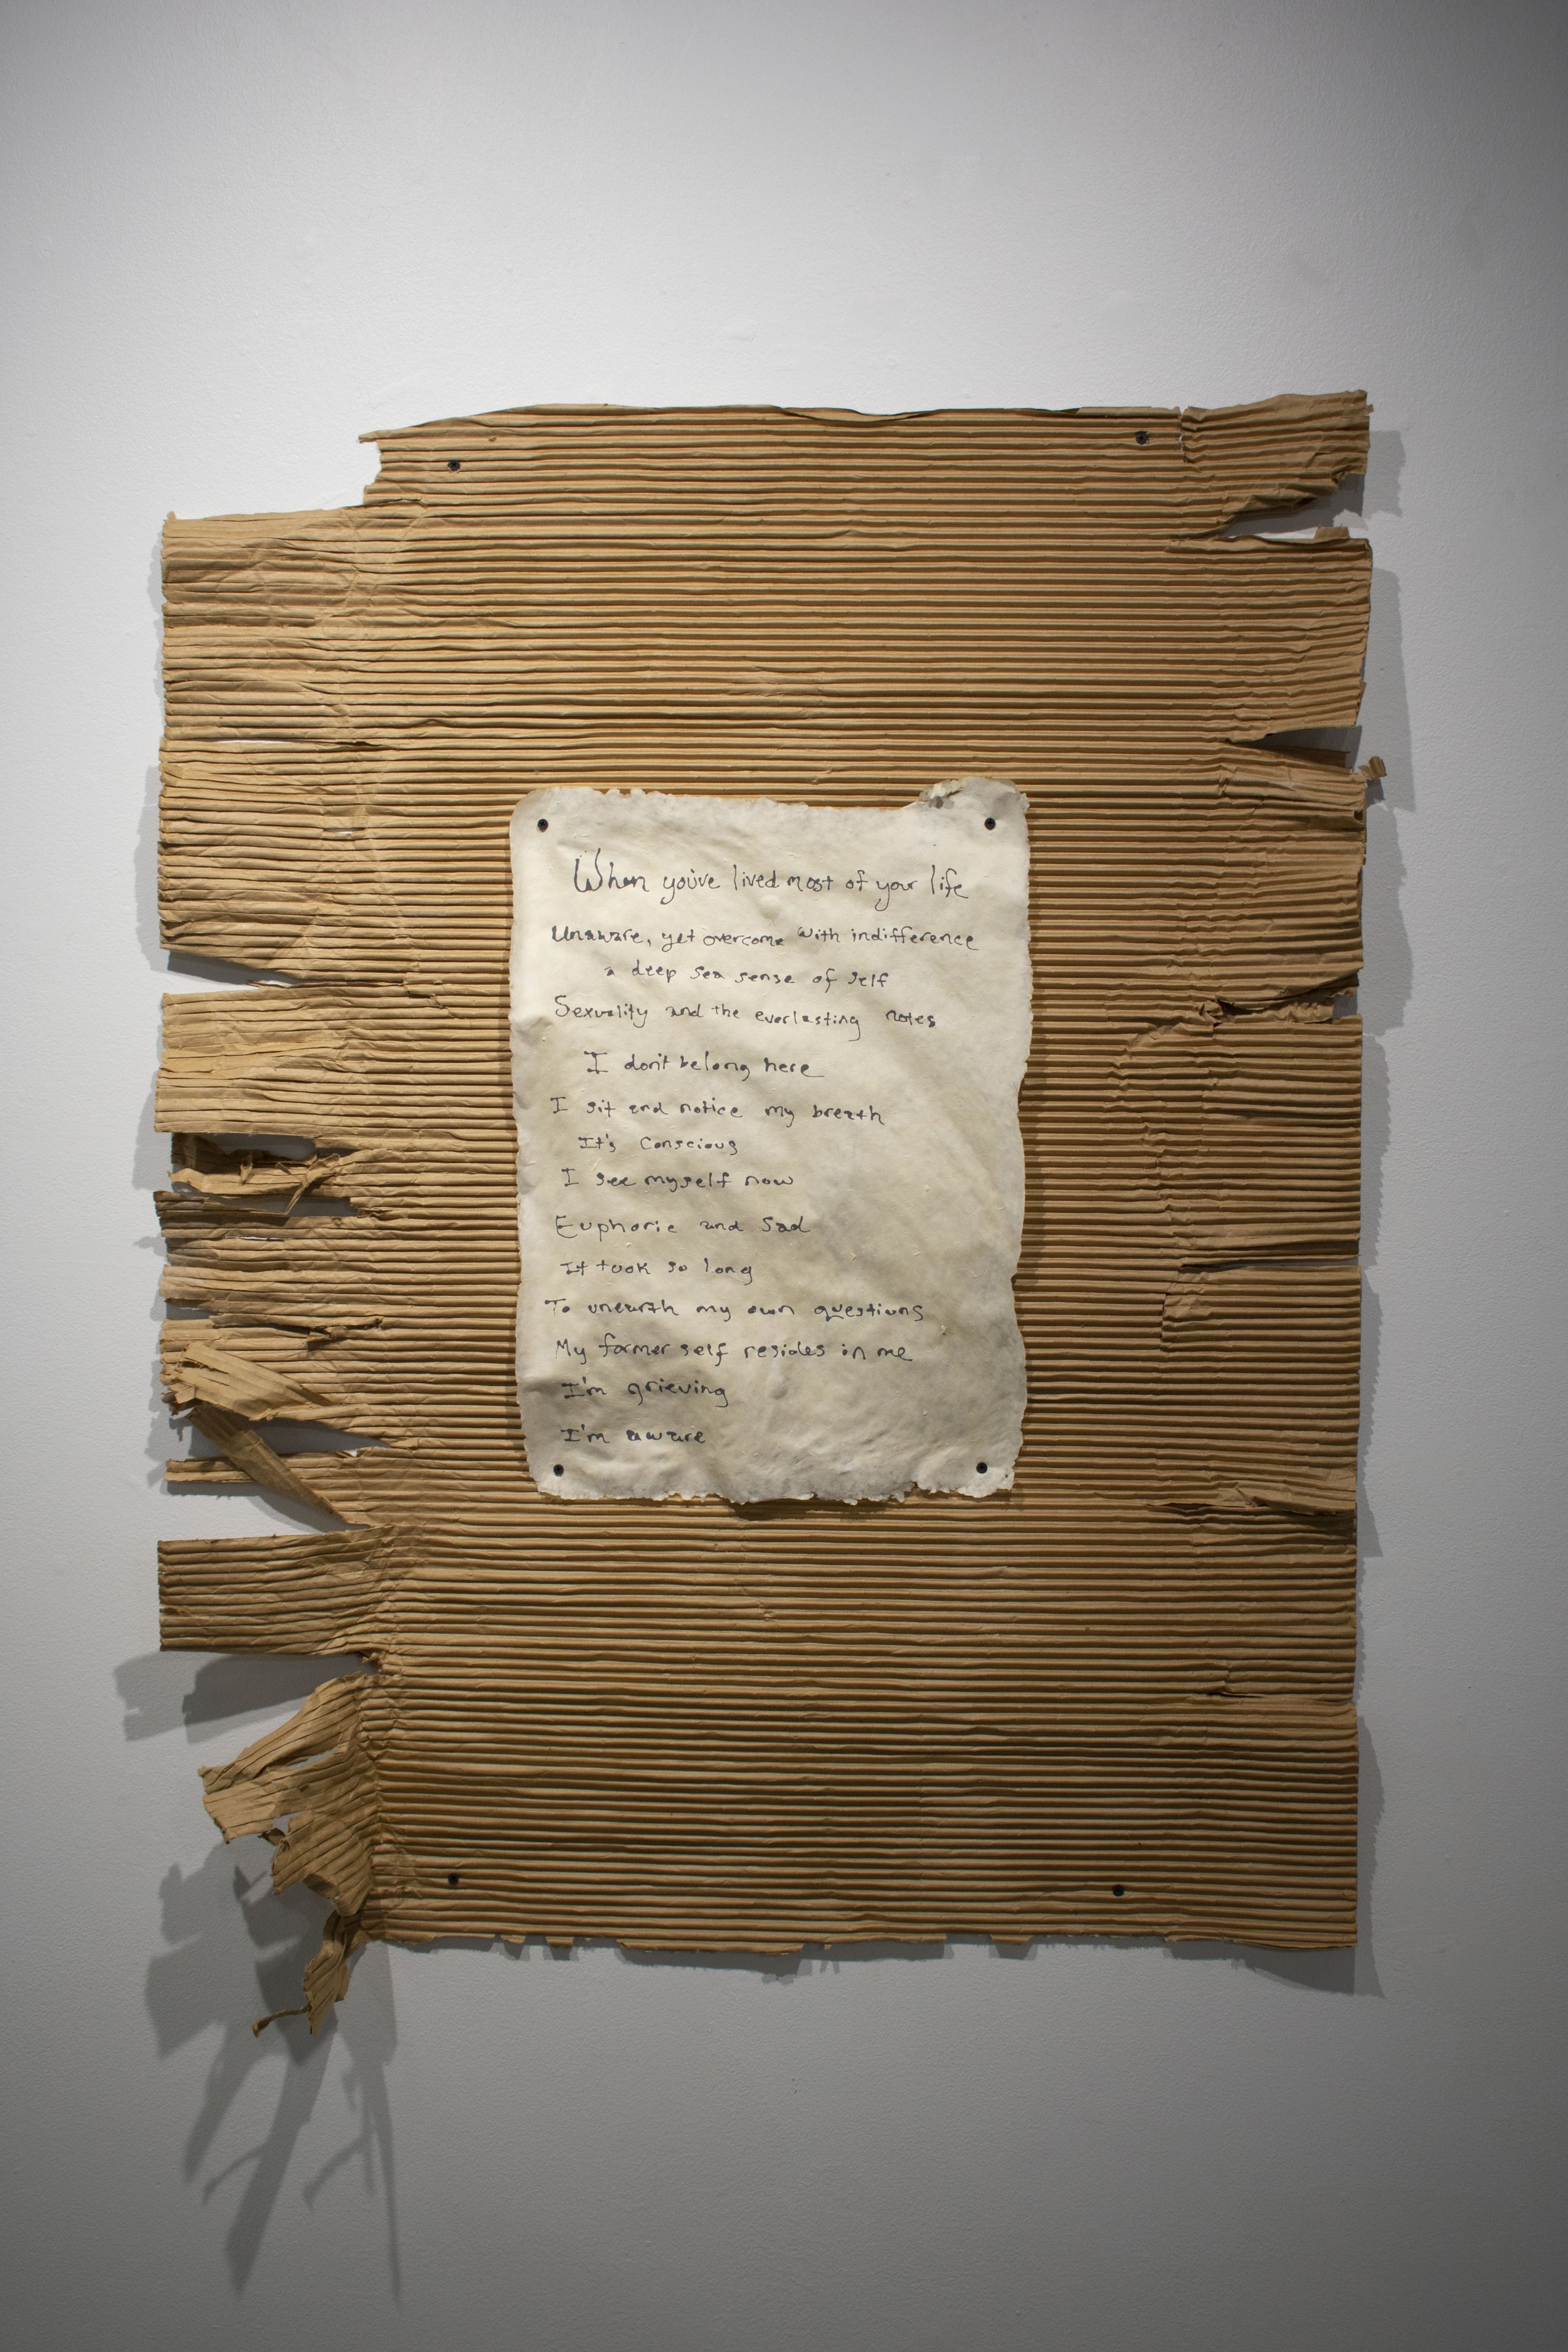 When you've lived most of your life
Unaware, yet overcome with indifference
a deep sea sense of self
Sexuality and the everlasting notes
I don't belong here
I sit and notice my breath
It's Conscious
I see myself now
Euphoric and Sad
It took so long
To unearth my own questions
My former self resides in me
I'm grieving
I'm aware